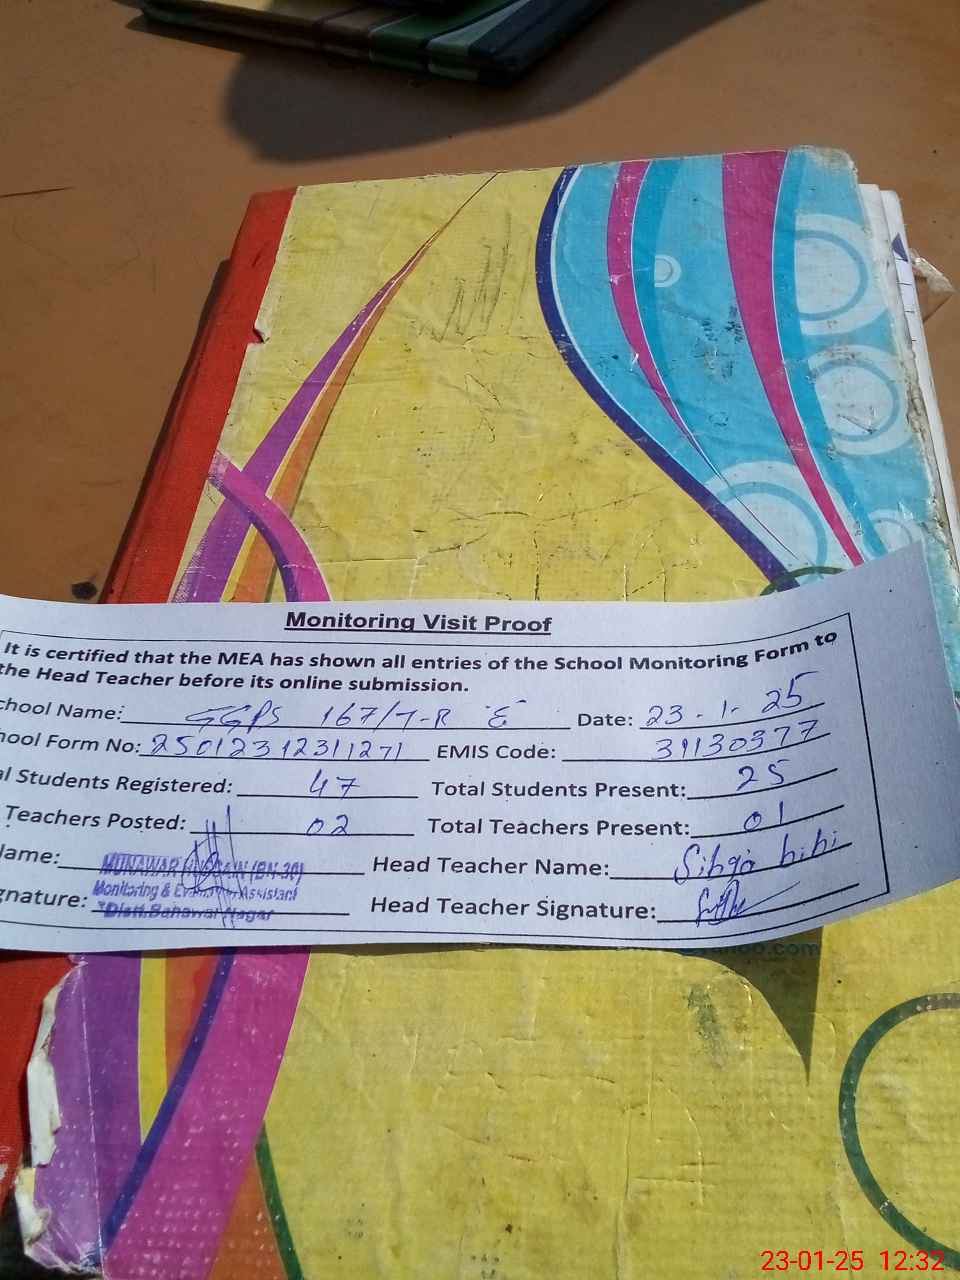 Monitoring Visit Proof
It is certified that the MEA has shown all entries of the School Monitoring Form to
the Head Teacher before its online submission.
chool Name: GGPS 167/7-R 'E' Date: 23-1-25
hool Form No: 25012312311271 EMIS Code: 31130377
al Students Registered: 47 Total Students Present: 25
Teachers Posted: 02 Total Teachers Present: 01
ame: MUNAWAR HUSSAIN (BN-36) Head Teacher Name: Sibga bibi
Monitoring & Evaluation Assistant
gnature: Distt. Bahawal Nagar Head Teacher Signature:
oo.com
23-01-25 12:32